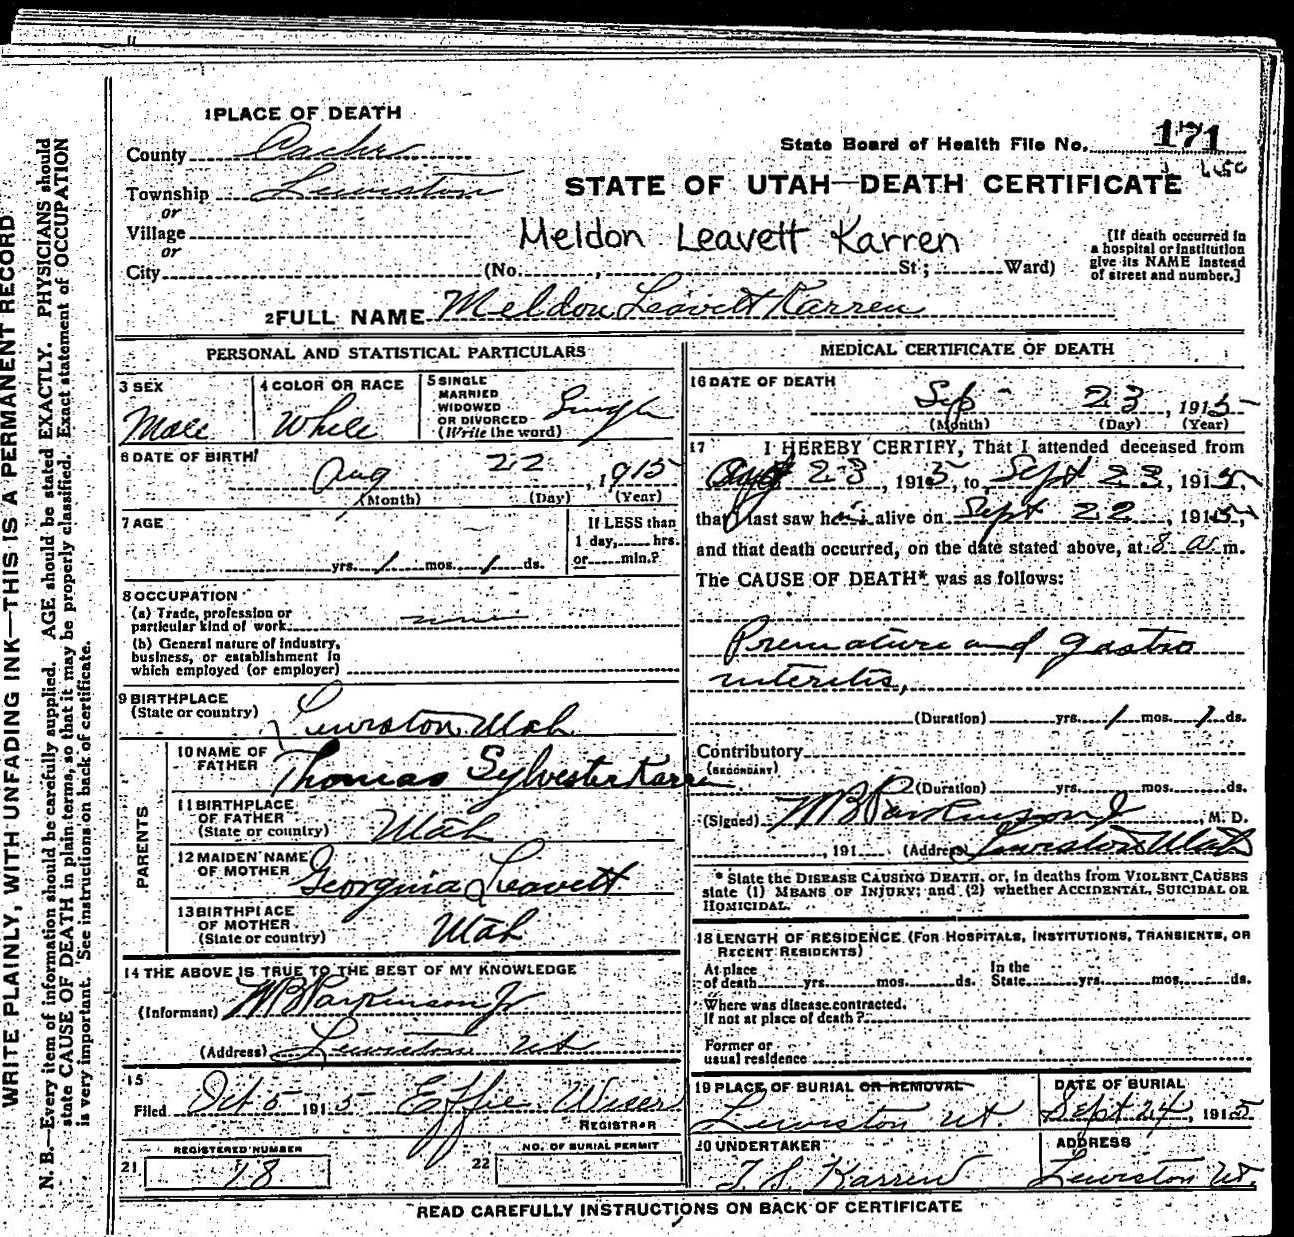 1 PLACE OF DEATH
County Cache
State Board of Health File No. 171
Township Lewiston
STATE OF UTAH—DEATH CERTIFICATE
or
Village
or
Meldon Leavett Karren
[If death occurred in a hospital or institution give its NAME instead of street and number.]
City (No. , St; Ward)
2 FULL NAME Meldon Leavett Karren
PERSONAL AND STATISTICAL PARTICULARS
3 SEX Male
4 COLOR OR RACE White
5 SINGLE MARRIED WIDOWED OR DIVORCED (Write the word) Single
6 DATE OF BIRTH
Aug 22, 1915
(Month) (Day) (Year)
7 AGE
yrs. 1 mos. 1 ds.
If LESS than 1 day, hrs. or min.?
8 OCCUPATION
(a) Trade, profession or
particular kind of work none
(b) General nature of industry,
business, or establishment in
which employed (or employer)
9 BIRTHPLACE
(State or country) Lewiston Utah
PARENTS
10 NAME OF FATHER Thomas Sylvester Karren
11 BIRTHPLACE OF FATHER (State or country) Utah
12 MAIDEN NAME OF MOTHER Georgnia Leavett
13 BIRTHPLACE OF MOTHER (State or country) Utah
14 THE ABOVE IS TRUE TO THE BEST OF MY KNOWLEDGE
(Informant) W B Parkinson Jr
(Address) Lewiston Ut
15
Filed Oct 5 1915 Effie Wiser
REGISTRAR
21 REGISTERED NUMBER 18
22 NO. OF BURIAL PERMIT
MEDICAL CERTIFICATE OF DEATH
16 DATE OF DEATH
Sep 23, 1915
(Month) (Day) (Year)
17 I HEREBY CERTIFY, That I attended deceased from
Aug 23, 1915, to Sept 23, 1915,
that I last saw him alive on Sept 22, 1915,
and that death occurred, on the date stated above, at 8 a. m.
The CAUSE OF DEATH* was as follows:
Premature and gastro
interitis,
(Duration) yrs. 1 mos. 1 ds.
Contributory
(SECONDARY)
(Duration) yrs. mos. ds.
(Signed) W B Parkinson Jr, M. D.
, 191 (Address) Lewiston Utah
* State the DISEASE CAUSING DEATH, or, in deaths from VIOLENT CAUSES
state (1) MEANS OF INJURY; and (2) whether ACCIDENTAL, SUICIDAL OR
HOMICIDAL.
18 LENGTH OF RESIDENCE (FOR HOSPITALS, INSTITUTIONS, TRANSIENTS, OR
RECENT RESIDENTS)
At place of death yrs. mos. ds. In the State yrs. mos. ds.
Where was disease contracted.
If not at place of death?
Former or
usual residence
19 PLACE OF BURIAL OR REMOVAL Lewiston Ut.
DATE OF BURIAL Sept 24, 1915
20 UNDERTAKER T. S. Karren
ADDRESS Lewiston Ut.
READ CAREFULLY INSTRUCTIONS ON BACK OF CERTIFICATE
WRITE PLAINLY, WITH UNFADING INK—THIS IS A PERMANENT RECORD
N. B.—Every item of information should be carefully supplied. AGE should be stated EXACTLY. PHYSICIANS should
state CAUSE OF DEATH in plain terms, so that it may be properly classified. Exact statement of OCCUPATION
is very important. See instructions on back of certificate.